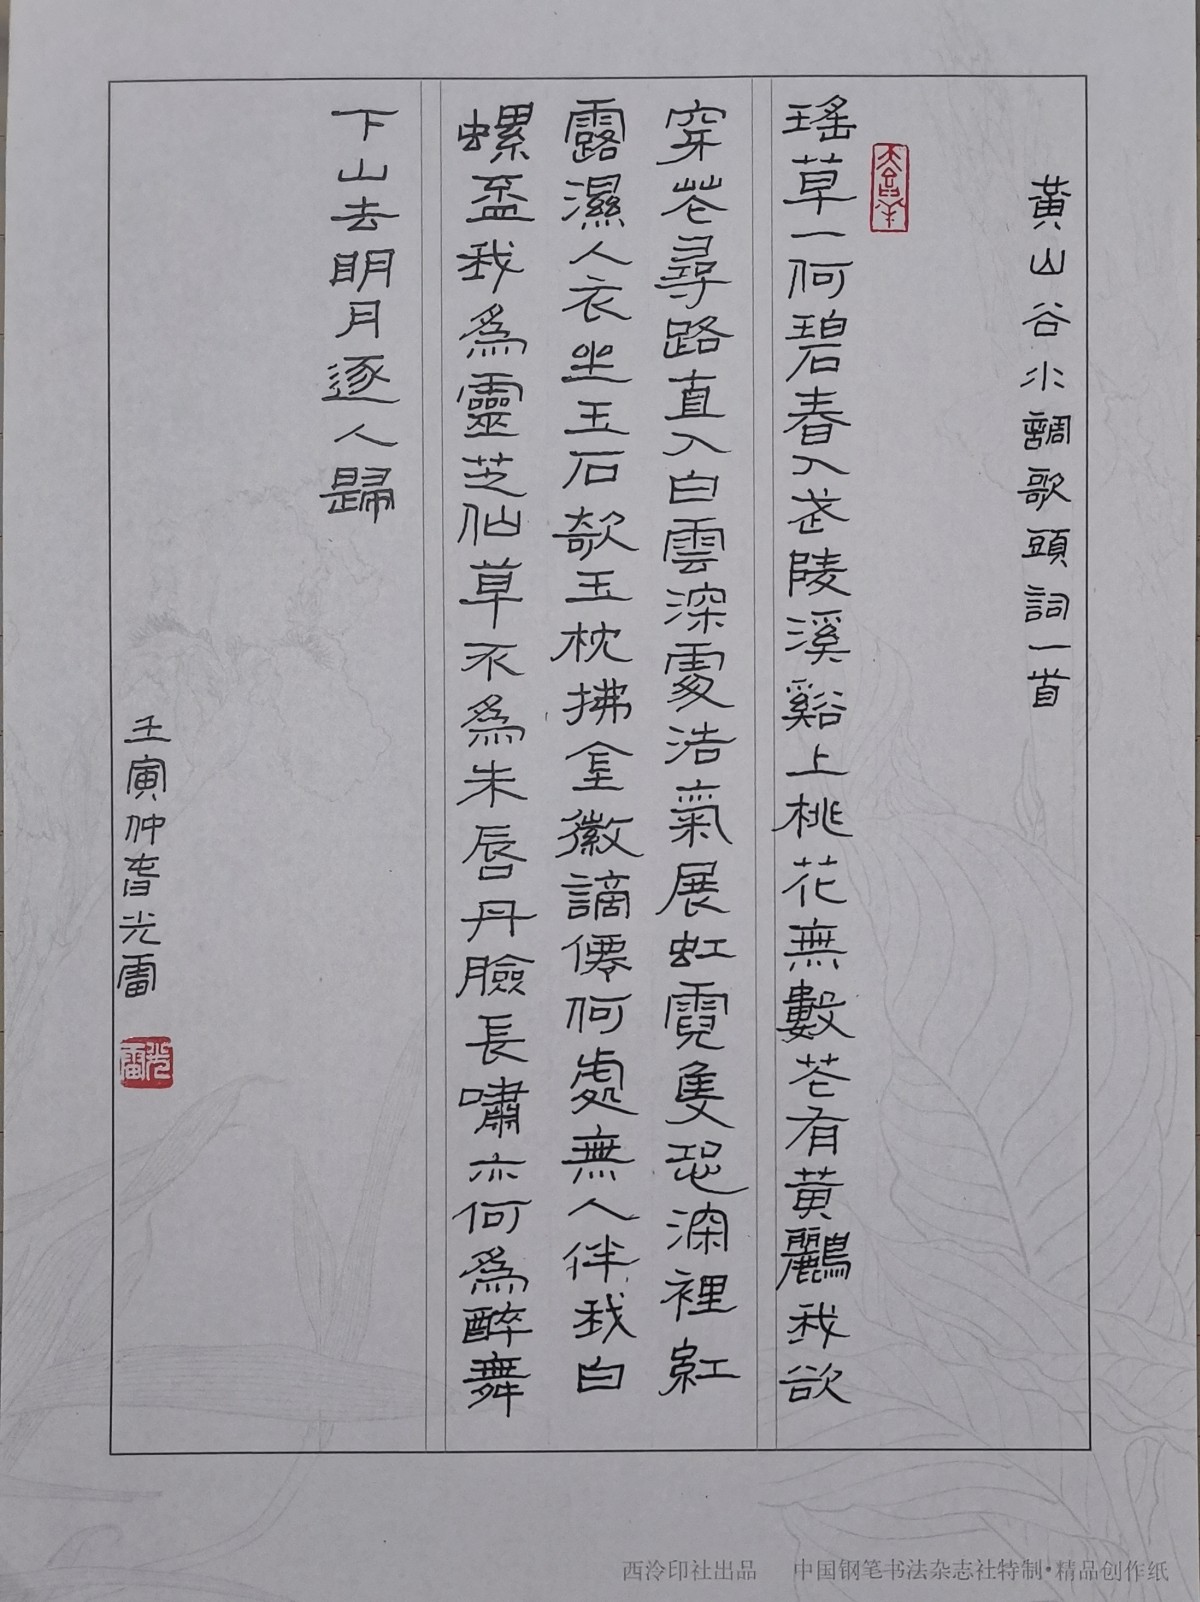 黃山谷小調歌頭詞一首
瑤草一何碧春入武陵溪谿上桃花無數花有黃鸝我欲
穿花尋路直入白雲深處浩氣展虹霓隻恐深裡紅
露濕人衣坐玉石欹玉枕拂金徽謫僊何處無人伴我白
螺盃我為靈芝仙草不為朱唇丹臉長嘯亦何為醉舞
下山去明月逐人歸
壬寅仲春光雷
光雷
西泠印社出品 中国钢笔书法杂志社特制•精品创作纸